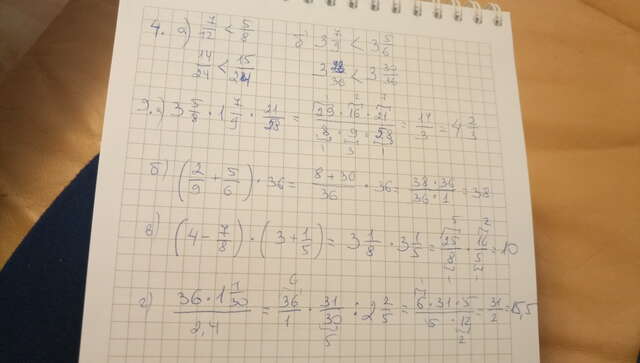 4. а) 7/12 < 5/8   б) 3 7/9 < 3 5/6
14/24 < 15/24   3 28/36 < 3 30/36
9. а) 3 5/8 · 1 7/9 · 21/28 = (29 · 16 · 21)/(8 · 9 · 28) = /3 = 4
б) (2/9 + 5/6) · 36 = (8 + 30)/36 · 36 = (38 · 36)/(36 · 1) = 38
в) (4 - 7/8) · (3 + 1/5) = 3 1/8 · 3 1/5 = 25/8 · 16/5 = 10
г) (36 · 1 1/30)/2,4 = 36/1 · 31/30 : 2 2/5 = (6 · 31 · 5)/(5 · 12) = 31/2 = 15,5